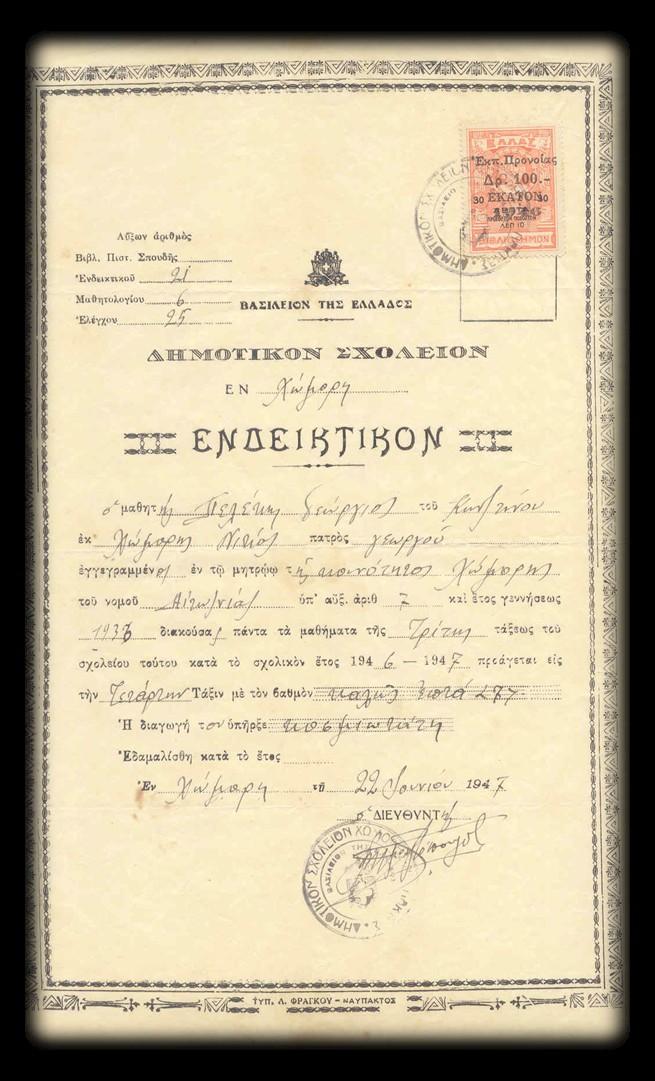 ΕΛΛΑΣ
Ἐκπ. Προνοίας
Δρ. 100.-
30 ΕΚΑΤΟΝ 30
ΛΕΠ 10
Αὔξων ἀριθμὸς
Βιβλ. Πιστ. Σπουδῆς
Ἐνδεικτικοῦ 21
Μαθητολογίου 6
Ἐλέγχου 25
ΒΑΣΙΛΕΙΟΝ ΤΗΣ ΕΛΛΑΔΟΣ
ΔΗΜΟΤΙΚΟΝ ΣΧΟΛΕΙΟΝ
ΕΝ Χώμορη
ΕΝΔΕΙΚΤΙΚΟΝ
ὁ μαθητὴς Πελέκης Γεώργιος τοῦ Κων/τίνου
ἐκ Χώμορης πατρὸς γεωργοῦ
ἐγγεγραμμένος ἐν τῷ μητρῴῳ τῆς κοινότητος Χώμορης
τοῦ νομοῦ Αἰτω/νίας ὑπ' αὔξ. ἀριθ 7 καὶ ἔτος γεννήσεως
διακούσας πάντα τὰ μαθήματα τῆς Τρίτης τάξεως τοῦ
σχολείου τούτου κατὰ τὸ σχολικὸν ἔτος 1946 — 1947 προάγεται εἰς
τὴν Τετάρτην Τάξιν μὲ τὸν βαθμὸν καλῶς ἑπτά
Ἡ διαγωγή του ὑπῆρξε κοσμιωτάτη
Ἐδαμαλίσθη κατὰ τὸ ἔτος
Ἐν Χώμορη τῇ 22 Ἰουνίου 1947
ὁ ΔΙΕΥΘΥΝΤΗΣ
ΔΗΜΟΤΙΚΟΝ ΣΧΟΛΕΙΟΝ
ΒΑΣΙΛΕΙΟΝ ΤΗΣ
ΤΥΠ. Λ. ΦΡΑΓΚΟΥ – ΝΑΥΠΑΚΤΟΣ